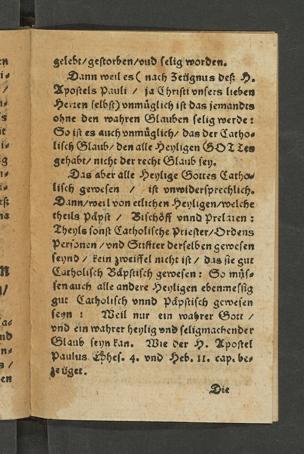 gelebt/gestorben/vnd selig worden.
Dann weil es ( nach Zeügnus deß H.
Apostels Pauli / ja Christi vnsers lieben
Herren selbst) vnmüglich ist das jemandts
ohne den wahren Glauben selig werde :
So ist es auch vnmüglich/ das der Catho-
lisch Glaub/ den alle Heyligen GOTTes
gehabt/ nicht der recht Glaub sey.
Das aber alle Heylige Gottes Catho-
lisch gewesen / ist vnwidersprechlich.
Dann/ weil von etlichen Heyligen/welche
theils Päpst / Bischöff vnnd Prelaten :
Theyls sonst Catholische Priester/Ordens
Personen / vnd Stiffter derselben gewesen
seynd / kein zweiffel nicht ist / das sie gut
Catholisch Bäpstisch gewesen : So müs-
sen auch alle andere Heyligen ebenmessig
gut Catholisch vnnd Päpstisch gewesen
seyn : Weil nur ein wahrer Gott /
vnd ein wahrer heylig vnd seligmachender
Glaub seyn kan. Wie der H. Apostel
Paulus Ephes. 4. vnd Heb. 11. cap. be-
zeüget.
Die